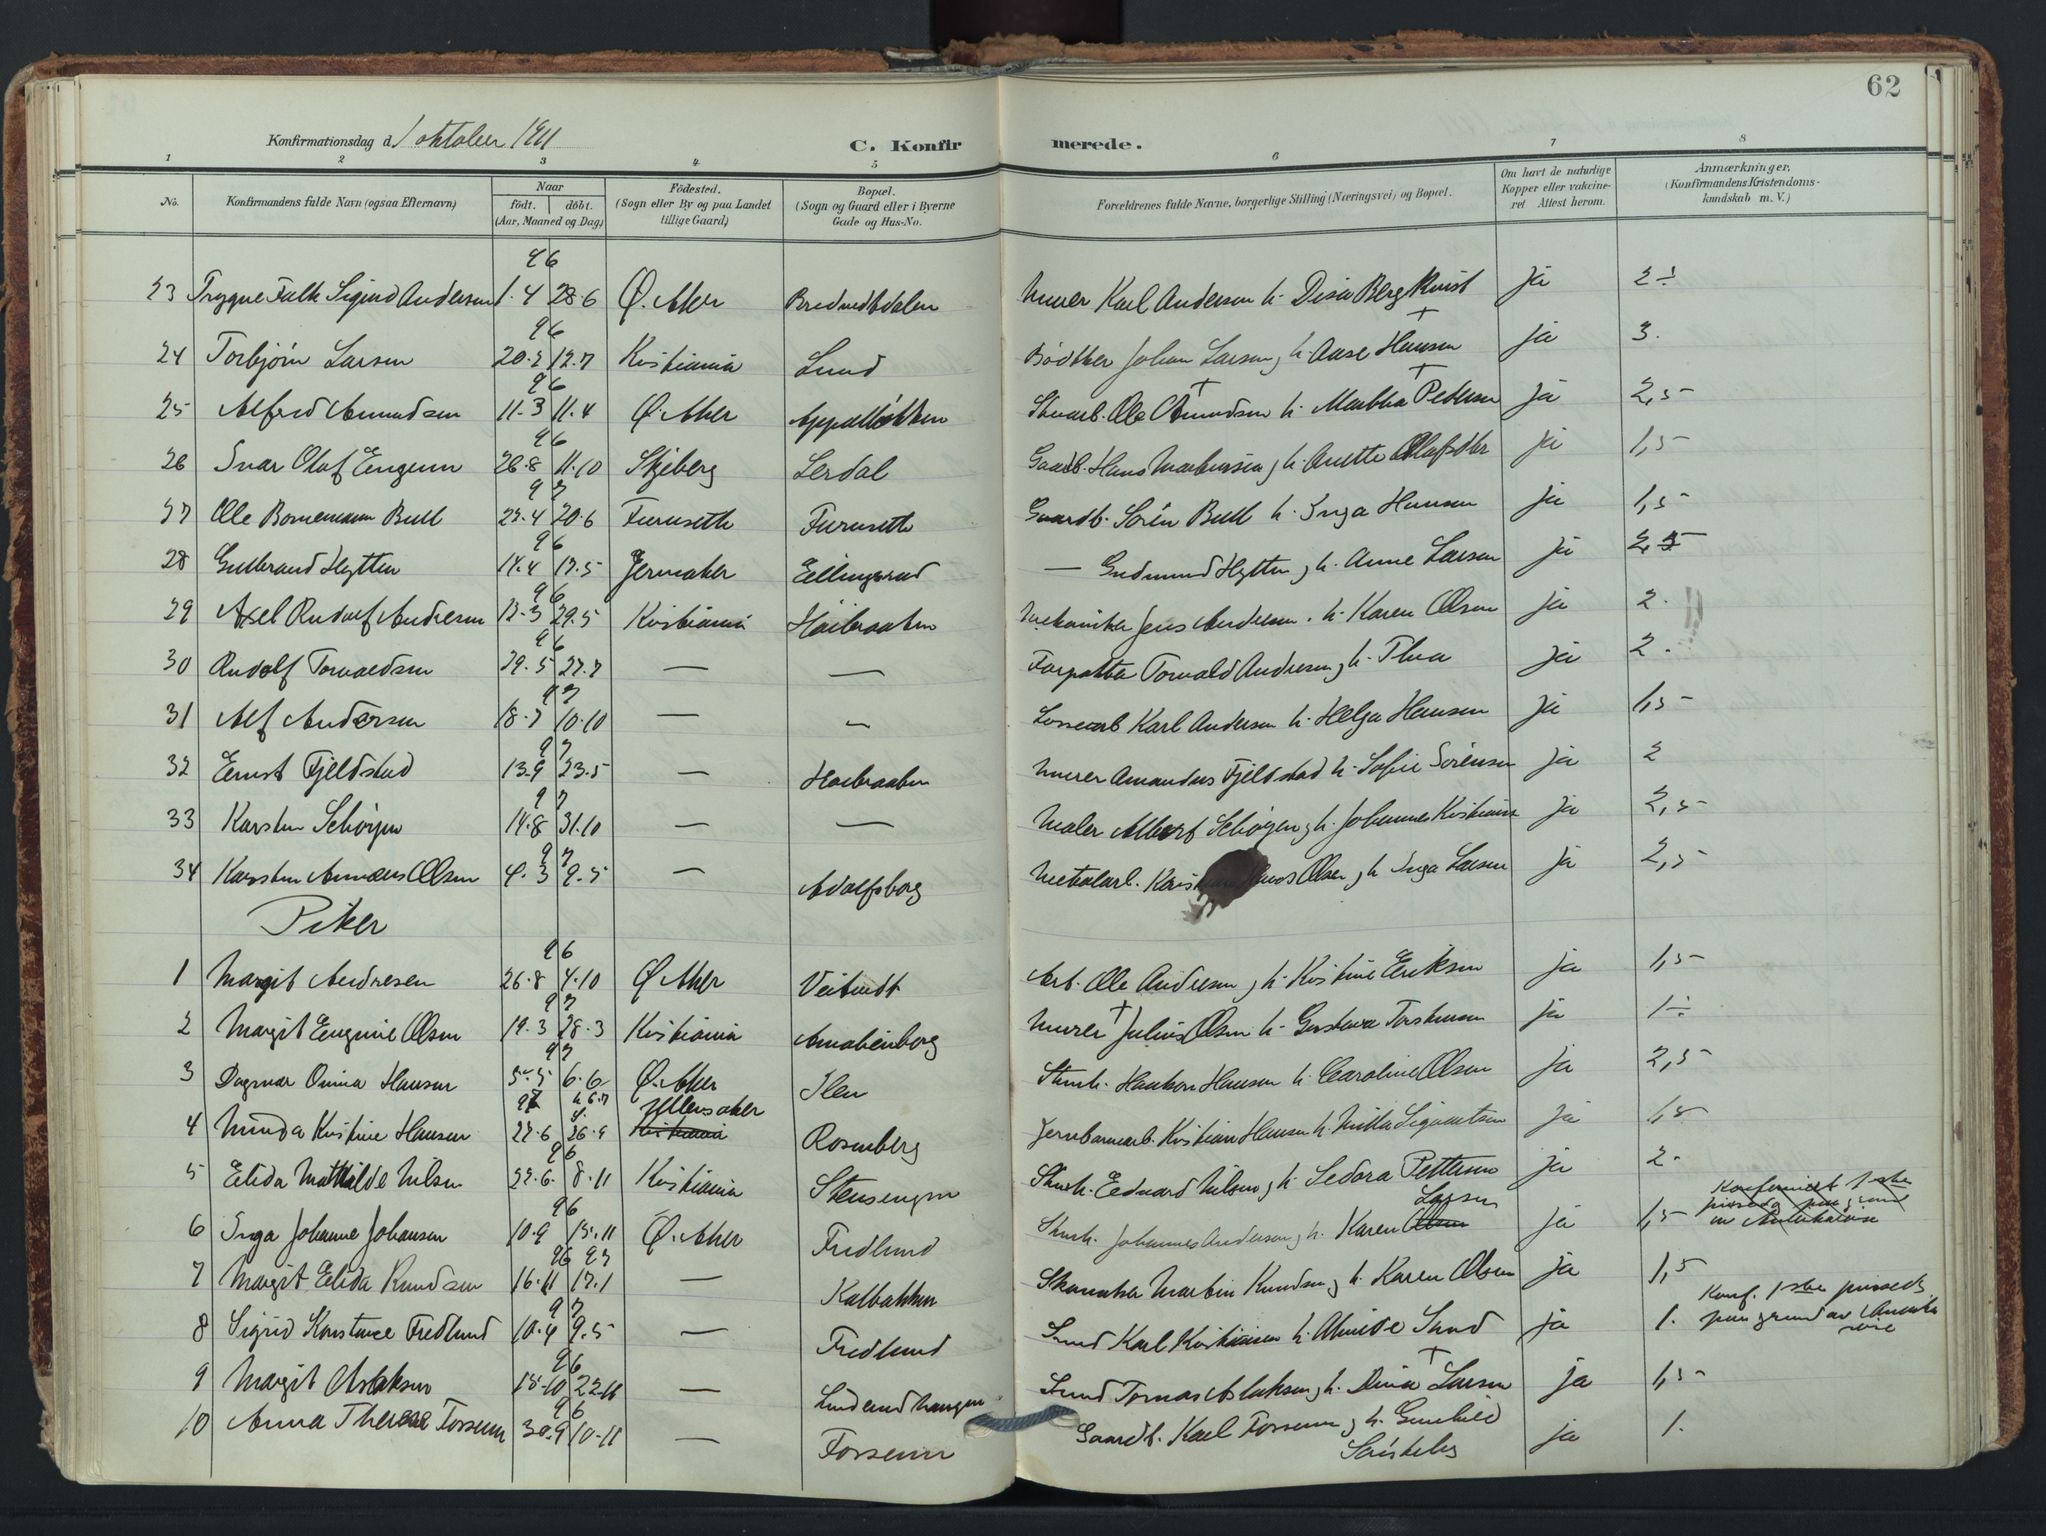 62
Konfirmationsdag d. 1 oktober 1911
C. Konfirmerede.
1 2 3 4 5 6 7 8
No. Konfirmandens fulde Navn (ogsaa Efternavn) Naar født. døbt. (Aar, Maaned og Dag) Födested. (Sogn eller By og paa Landet tillige Gaard) Bopæl. (Sogn og Gaard eller i Byerne Gade og Hus-No. Forældrenes fulde Navne, borgerlige Stilling (Næringsvei) og Bopæl. Om havt de naturlige Kopper eller vaccineret Attest herom. Anmærkninger. (Konfirmandens Kristendomskundskab m. V.)
96
23 Trygve Falk Sigurd Andersen 1.4 28.6 Ø. Aker Bredvedtdalen Murer Karl Andersen h. Disa Bergkvist ja 2÷
96
24 Torbjörn Larsen 20.2 12.7 Kristiania Lund Bødtker Johan Larsen, h. Aase Hansen † ja 3.
96
25 Alfred Amundsen 11.3 11.4 Ø. Aker Appalløkken Ole Amundsen † h. Martha Pedersen † ja 2,5
96
26 Ivar Olaf Engum 26.8 11.10 Skjeberg Lerdal Gaardb. Hans h. Anette Olafsdtr ja 1,5
97
27 Ole Bornemann Bull 23.4 20.6 Furuseth Furuseth Gaardb. Sorén Bull h. Inga Hansen ja 1,5
96
28 Gulbrand Hytten 14.4 17.5 Ellingsrud — Gudmund Hytten, h. Anne Larsen ja 2,5
96
29 Axel Rudolf Andresen 13.3 29.5 Kristiania Höibraaten Mekaniker Jens Andersen. h. Karen Olsen ja 2.
96
30 Rudolf Torvaldsen 29.5 27.7 — — Torvald Andresen, h. Thea ja 2.
97
31 Alf Andersen 18.7 10.10 — — Lossearb Karl Andersen h. Helga Hansen ja 1,5
97
32 Ernst Fjeldstad 13.9 23.5 — Höibraaten Murer Amandus Fjeldstad h. Sofie Sörensen ja 2
97
33 Karsten Schöyen 14.8 31.10 — — Maler Albert Schöyen, h. Johanne Kristians ja 2,5
97
34 Karsten Olsen 4.3 9.5 — Adolfsborg Metalarb. Olsen, h Inga Larsen ja 2,5
Piker
96
1 Margit Andresen 26.8 4.10 Ø. Aker Veitvedt Arb. Ole Andersen, h. Kristine Eriksen ja 1,5
97
2 Margit Eugenie Olsen 19.3 28.3 Kristiania Amalienborg Murer † Julius Olsen h. Gustava Torstensen ja 1÷
97
3 Dagmar Hansen 5.5 6.6 Ø. Aker Ilen Haakon Hansen h. Caroline Olsen ja 2,5
97 Ullensaker
4 Minda Kristine Hansen 27.6 26.9 Kristiania Rosenberg Jernbanearb. Kristian Hansen h. Milla Sigvartsen ja 1,5
96
5 Elida Mathilde Nilsen 22.6. 8.11 Kristiania Stensengen Eedvard Nilsen, h. Sedora Pettersen ja 2.
96 Larsen Konfirmert 1ste
6 Inga Johanne Johansen 10.9 15.11 Ø. Aker Fredlund Johannes Anderson, h. Karen Olsen ja 1,5
96 97
7 Margit Elida Knudsen 16.11 17.1 — Kalbakken Skomaker Martin Knudsen, h. Karen Olsen ja 1,5
97 Konf. 1ste pinsedg
8 Sigrid Konstance Fredlund 10.4 9.5 — Fredlund Smed Karl Kristiansen h. Alvide Lund ja 1. paa grund av Amerika
reise
96
9 Margit Aslaksen 15.10 22.11 — Smed Tomas Aslaksen, h. Dina † Larsen ja 1,5
96
10 Anna Therese Forsenn 30.9 10.11 — Forsenn Gaardb. Karl Forsenn, h. Gunhild ja 1.